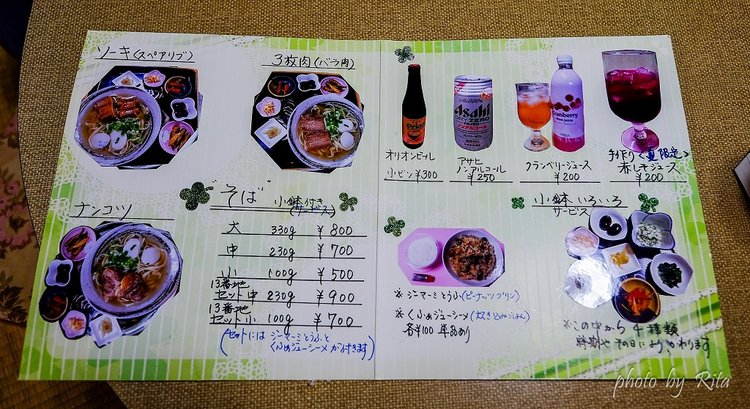 ソーキ(スペアリブ)
3枚肉(バラ肉)
ナンコツ
"そば" 小鉢付き
(サービス)
大 330g ¥800
中 230g ¥700
小 100g ¥500
13番地
セット中 230g ¥900
13番地
セット小 100g ¥700
(セットには ジーマーミとうふと
くふぁジューシーメが付きます)
オリオンビール
小ビン ¥300
Asahi
ZERO
アサヒ
ノンアルコール
¥250
cranberry
クランベリージュース
¥200
手作り<夏限定>
赤しそジュース
¥200
小鉢いろいろ
サービス
※ ジーマーミとうふ(ピーナッツプリン)
※ くふぁジューシーメ(炊き込みごはん)
各¥100 単品あり
※この中から4種類
時期や その日によりかわります
photo by Rita